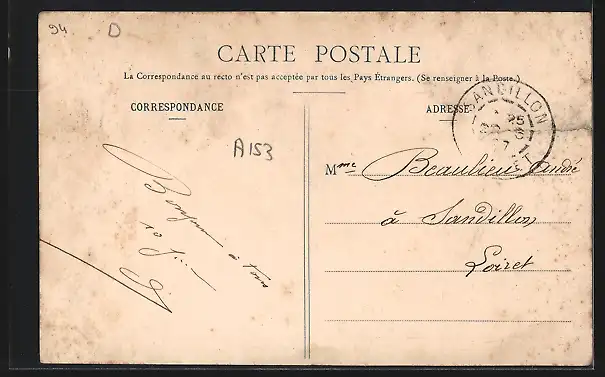 94 D
CARTE POSTALE
La Correspondance au recto n'est pas acceptée par tous les Pays Étrangers. (Se renseigner à la Poste.)
CORRESPONDANCE
ADRESSE
SANDILLON
25
A153
Mme Beaulieu André
à Sandillon
Loiret
Bonjour à tous